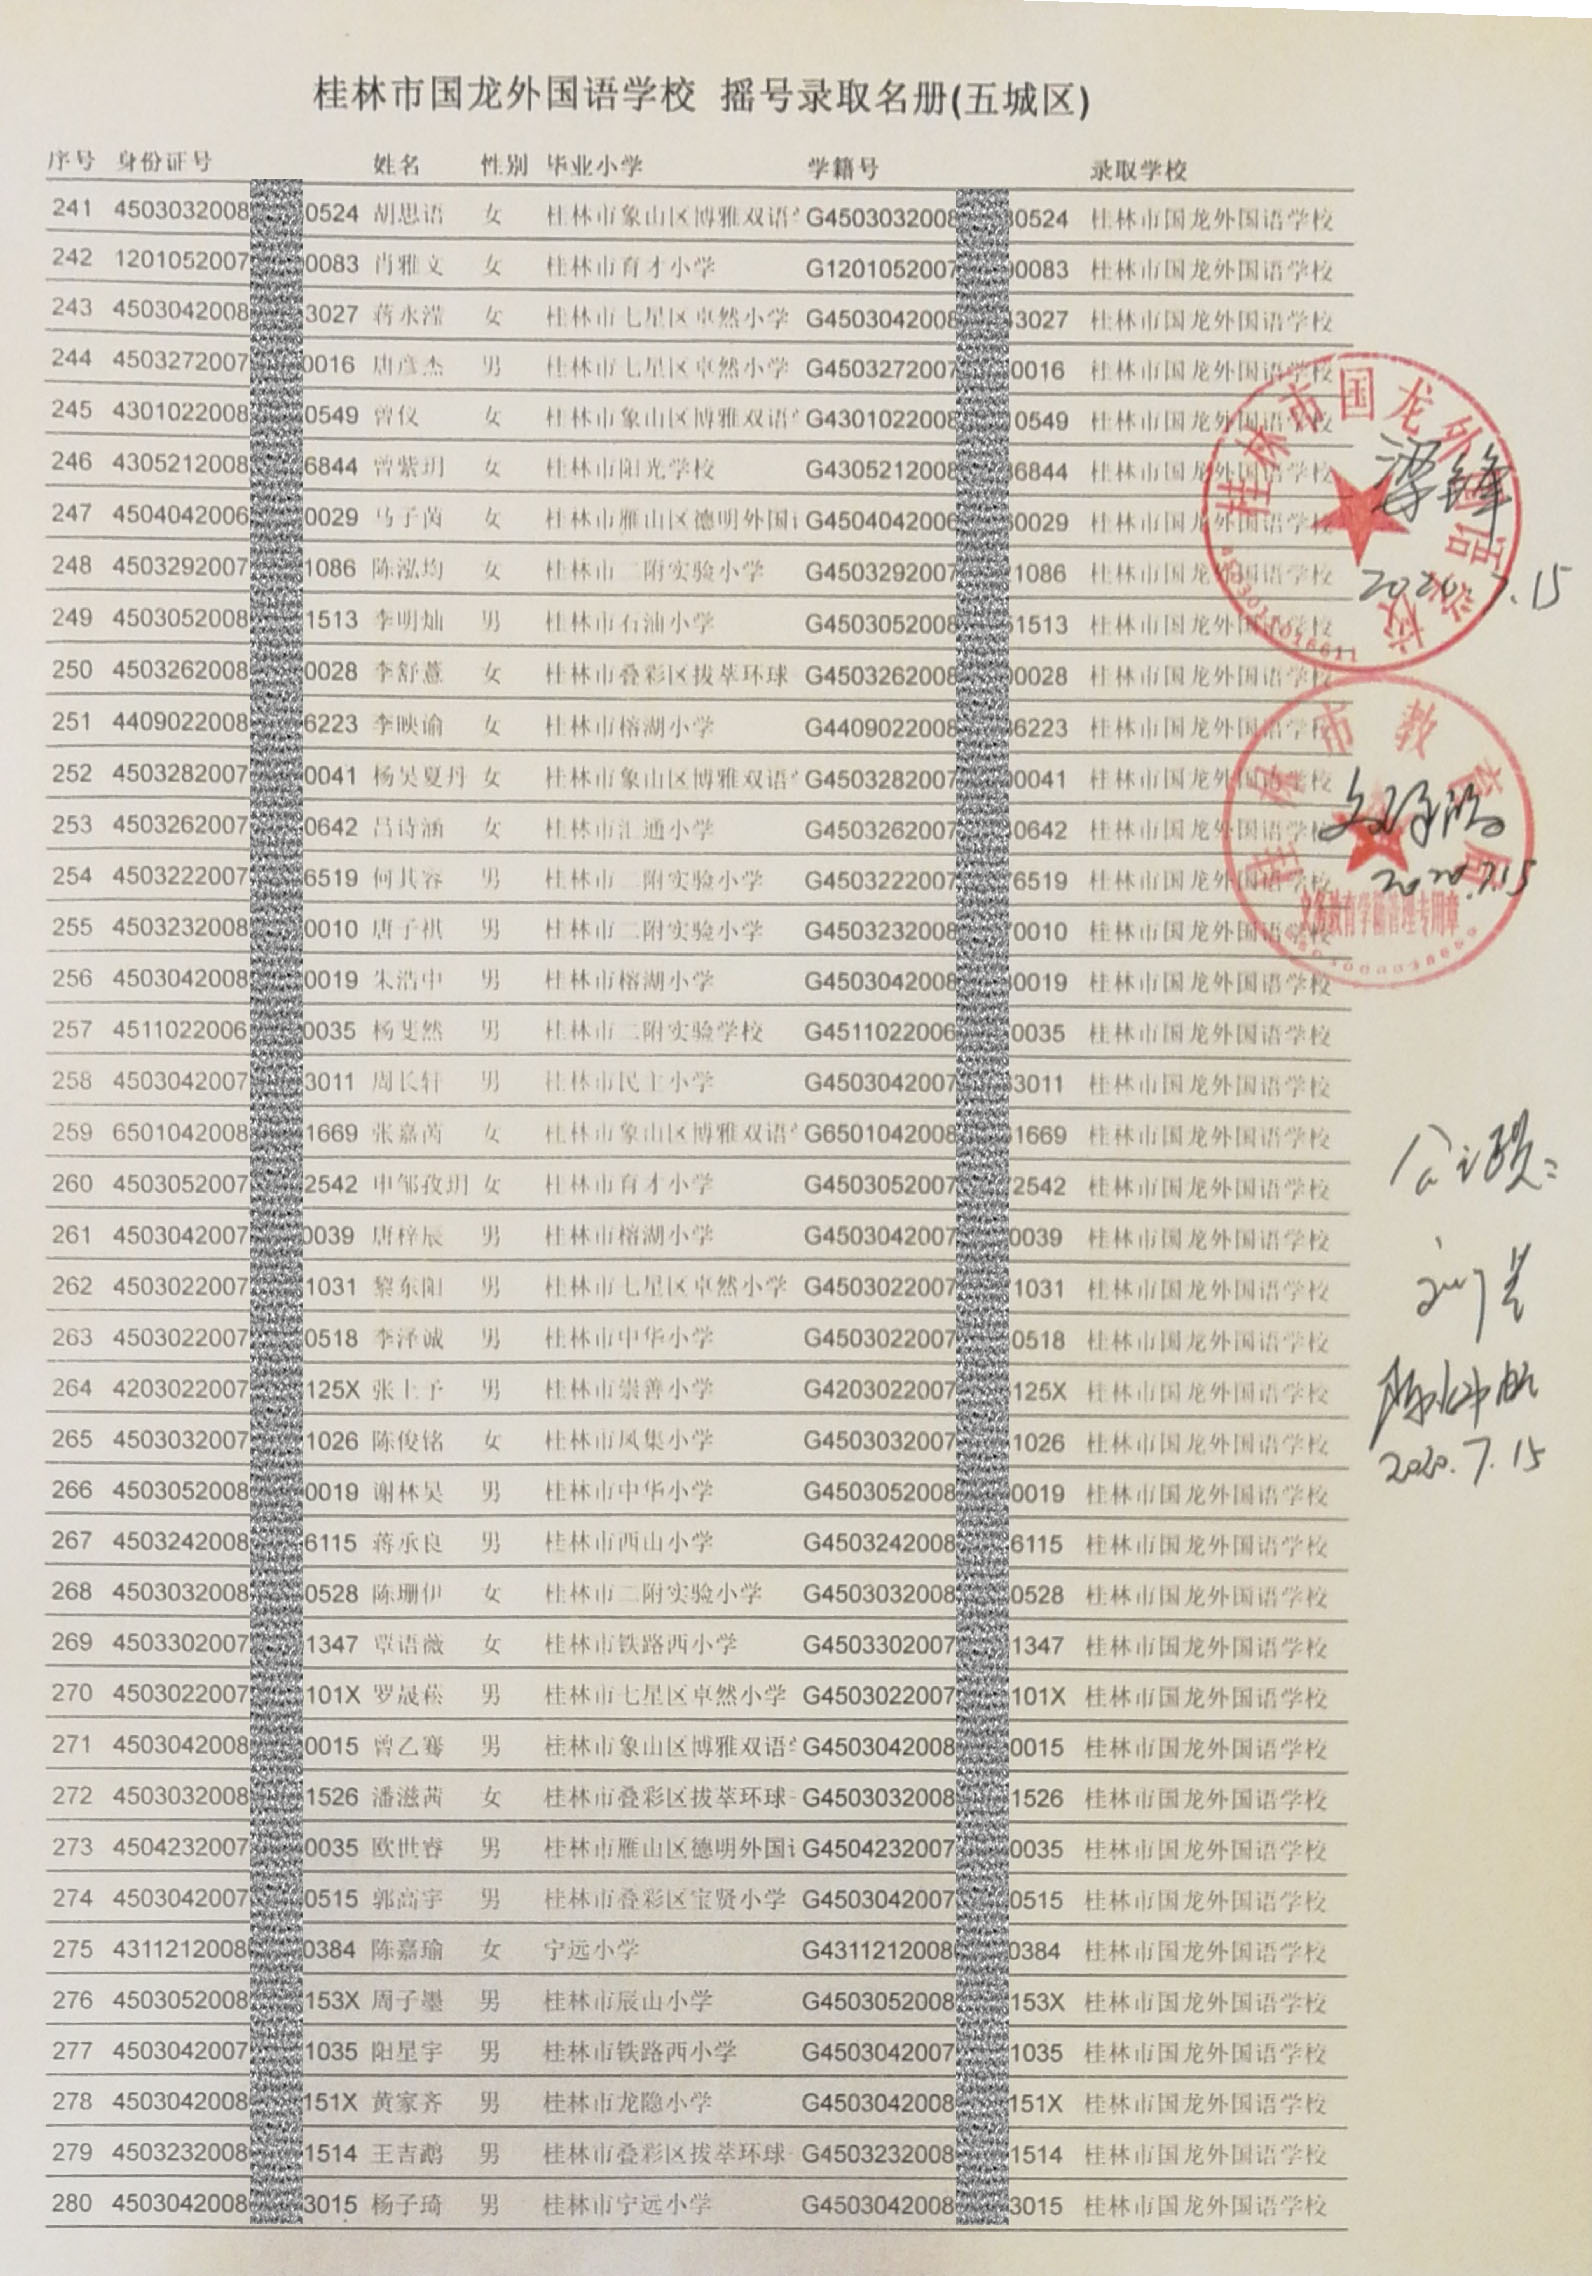 桂林市国龙外国语学校 摇号录取名册(五城区)
序号 身份证号 姓名 性别 毕业小学 学籍号 录取学校
241 4503032008 0524 胡思语 女 桂林市象山区博雅双语 G4503032008 0524 桂林市国龙外国语学校
242 1201052007 0083 肖雅文 女 桂林市育才小学 G1201052007 0083 桂林市国龙外国语学校
243 4503042008 3027 蒋永滢 女 桂林市七星区卓然小学 G4503042008 3027 桂林市国龙外国语学校
244 4503272007 0016 唐彦杰 男 桂林市七星区卓然小学 G4503272007 0016 桂林市国龙外国语学校
245 4301022008 0549 曾仪 女 桂林市象山区博雅双语 G4301022008 0549 桂林市国龙外国语学校
246 4305212008 6844 曾紫玥 女 桂林市阳光学校 G4305212008 6844 桂林市国龙外国语学校
247 4504042006 0029 马子茵 女 桂林市雁山区德明外国 G4504042006 0029 桂林市国龙外国语学校
248 4503292007 1086 陈泓均 女 桂林市二附实验小学 G4503292007 1086 桂林市国龙外国语学校
249 4503052008 1513 李明灿 男 桂林市石油小学 G4503052008 1513 桂林市国龙外国语学校
250 4503262008 0028 李舒薏 女 桂林市叠彩区拔萃环球 G4503262008 0028 桂林市国龙外国语学校
251 4409022008 6223 李映谕 女 桂林市榕湖小学 G4409022008 6223 桂林市国龙外国语学校
252 4503282007 0041 杨吴夏丹 女 桂林市象山区博雅双语 G4503282007 0041 桂林市国龙外国语学校
253 4503262007 0642 吕诗涵 女 桂林市汇通小学 G4503262007 0642 桂林市国龙外国语学校
254 4503222007 6519 何其容 男 桂林市二附实验小学 G4503222007 6519 桂林市国龙外国语学校
255 4503232008 0010 唐子祺 男 桂林市二附实验小学 G4503232008 0010 桂林市国龙外国语学校
256 4503042008 0019 朱浩中 男 桂林市榕湖小学 G4503042008 0019 桂林市国龙外国语学校
257 4511022006 0035 杨斐然 男 桂林市二附实验学校 G4511022006 0035 桂林市国龙外国语学校
258 4503042007 3011 周长轩 男 桂林市民主小学 G4503042007 3011 桂林市国龙外国语学校
259 6501042008 1669 张嘉芮 女 桂林市象山区博雅双语 G6501042008 1669 桂林市国龙外国语学校
260 4503052007 2542 申邹孜玥 女 桂林市育才小学 G4503052007 2542 桂林市国龙外国语学校
261 4503042007 0039 唐梓辰 男 桂林市榕湖小学 G4503042007 0039 桂林市国龙外国语学校
262 4503022007 1031 黎东阳 男 桂林市七星区卓然小学 G4503022007 1031 桂林市国龙外国语学校
263 4503022007 0518 李泽诚 男 桂林市中华小学 G4503022007 0518 桂林市国龙外国语学校
264 4203022007 125X 张上予 男 桂林市崇善小学 G4203022007 125X 桂林市国龙外国语学校
265 4503032007 1026 陈俊铭 女 桂林市凤集小学 G4503032007 1026 桂林市国龙外国语学校
266 4503052008 0019 谢林昊 男 桂林市中华小学 G4503052008 0019 桂林市国龙外国语学校
267 4503242008 6115 蒋承良 男 桂林市西山小学 G4503242008 6115 桂林市国龙外国语学校
268 4503032008 0528 陈珊伊 女 桂林市二附实验小学 G4503032008 0528 桂林市国龙外国语学校
269 4503302007 1347 覃语薇 女 桂林市铁路西小学 G4503302007 1347 桂林市国龙外国语学校
270 4503022007 101X 罗晟菘 男 桂林市七星区卓然小学 G4503022007 101X 桂林市国龙外国语学校
271 4503042008 0015 曾乙骞 男 桂林市象山区博雅双语 G4503042008 0015 桂林市国龙外国语学校
272 4503032008 1526 潘滋茜 女 桂林市叠彩区拔萃环球 G4503032008 1526 桂林市国龙外国语学校
273 4504232007 0035 欧世睿 男 桂林市雁山区德明外国 G4504232007 0035 桂林市国龙外国语学校
274 4503042007 0515 郭高宇 男 桂林市叠彩区宝贤小学 G4503042007 0515 桂林市国龙外国语学校
275 4311212008 0384 陈嘉瑜 女 宁远小学 G4311212008 0384 桂林市国龙外国语学校
276 4503052008 153X 周子墨 男 桂林市辰山小学 G4503052008 153X 桂林市国龙外国语学校
277 4503042007 1035 阳星宇 男 桂林市铁路西小学 G4503042007 1035 桂林市国龙外国语学校
278 4503042008 151X 黄家齐 男 桂林市龙隐小学 G4503042008 151X 桂林市国龙外国语学校
279 4503232008 1514 王吉鹉 男 桂林市叠彩区拔萃环球 G4503232008 1514 桂林市国龙外国语学校
280 4503042008 3015 杨子琦 男 桂林市宁远小学 G4503042008 3015 桂林市国龙外国语学校
桂林市国龙外国语学校
2020.7.15
桂林市教育局
2020.7.15
义务教育学籍管理专用章
2020.7.15